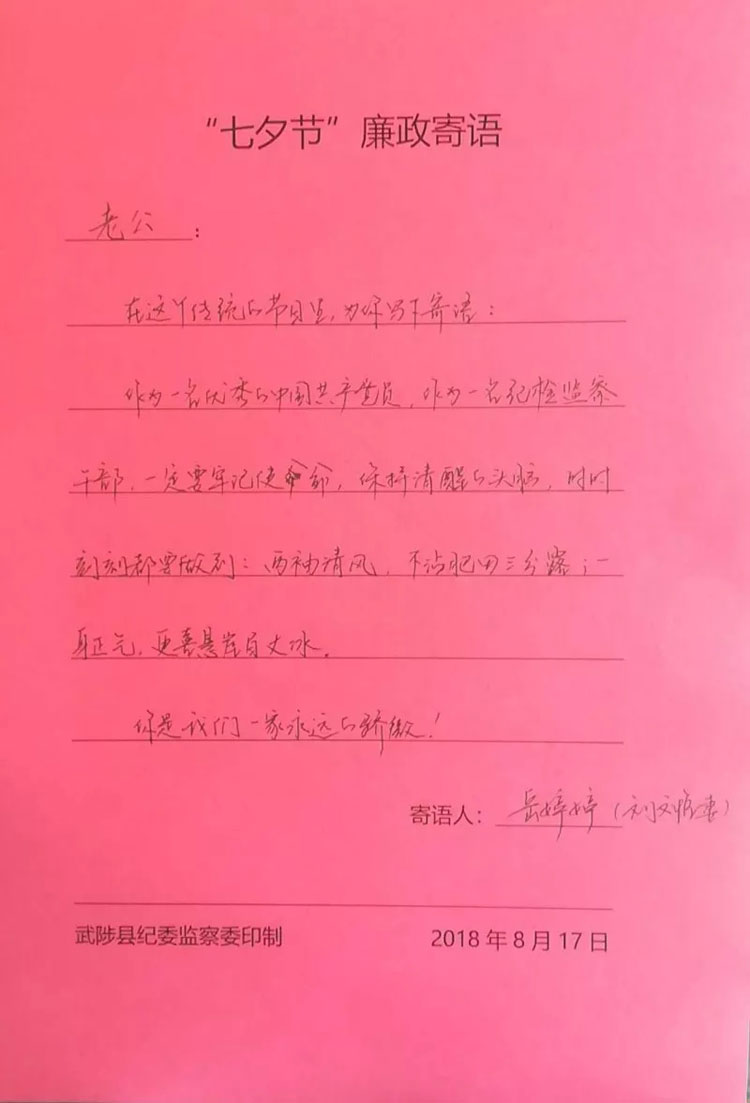 “七夕节”廉政寄语
老公:
在这个传统的节日里,为你写下寄语:
作为一名优秀的中国共产党员,作为一名纪检监察
干部,一定要牢记使命,保持清醒的头脑,时时
刻刻都要做到:两袖清风,不沾肥田三分露;一
身正气,更喜悬崖百丈冰。
你是我们一家永远的骄傲!
寄语人:岳婷婷(刘文 妻)
武陟县纪委监察委印制
2018年8月17日